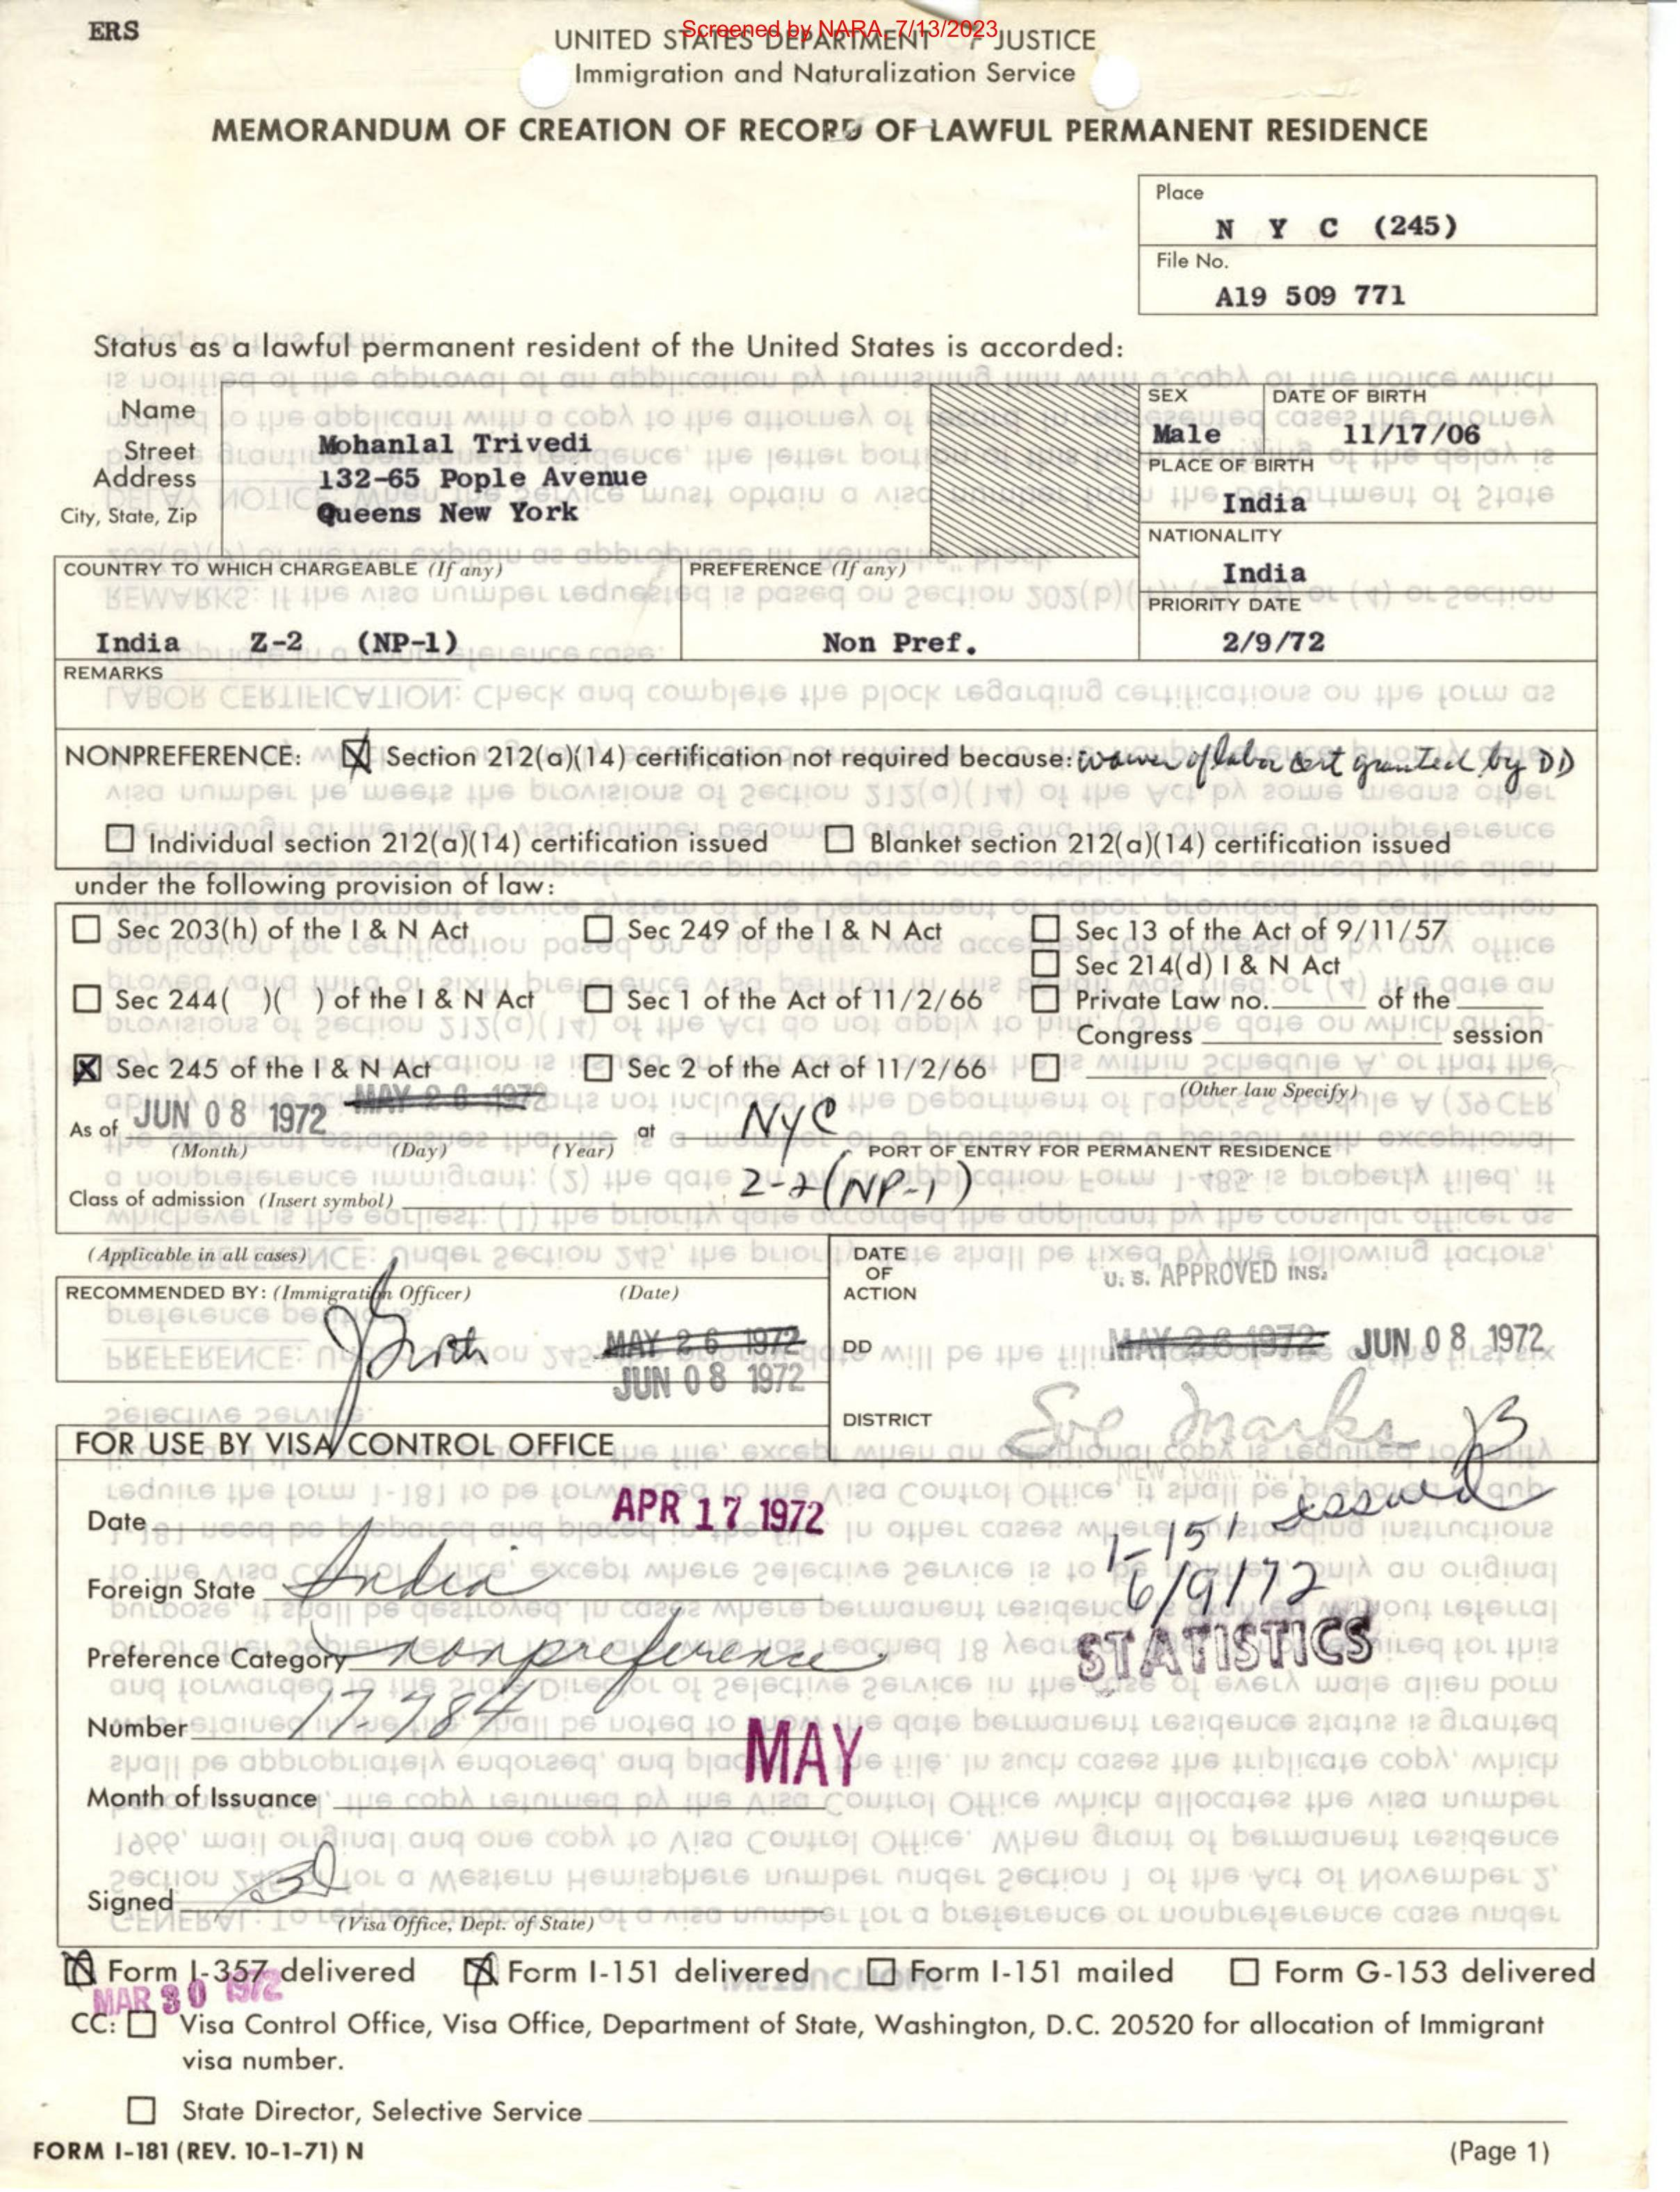 ERS
Screened by NARA, 7/13/2023
UNITED STATES DEPARTMENT OF JUSTICE
Immigration and Naturalization Service
MEMORANDUM OF CREATION OF RECORD OF LAWFUL PERMANENT RESIDENCE
Place
N Y C (245)
File No.
A19 509 771
Status as a lawful permanent resident of the United States is accorded:
Name
Street
Address
City, State, Zip
Mohanlal Trivedi
132-65 Pople Avenue
Queens New York
SEX
Male
DATE OF BIRTH
11/17/06
PLACE OF BIRTH
India
NATIONALITY
India
COUNTRY TO WHICH CHARGEABLE (If any)
India Z-2 (NP-1)
PREFERENCE (If any)
Non Pref.
PRIORITY DATE
2/9/72
REMARKS
NONPREFERENCE: Section 212(a)(14) certification not required because: waiver of labor cert granted by DD
Individual section 212(a)(14) certification issued Blanket section 212(a)(14) certification issued
under the following provision of law:
Sec 203(h) of the I & N Act Sec 249 of the I & N Act Sec 13 of the Act of 9/11/57
Sec 214(d) I & N Act
Sec 244( )( ) of the I & N Act Sec 1 of the Act of 11/2/66 Private Law no. of the
Congress session
Sec 245 of the I & N Act Sec 2 of the Act of 11/2/66
(Other law Specify)
MAY 26 1972
As of JUN 08 1972 at NYC
(Month) (Day) (Year) PORT OF ENTRY FOR PERMANENT RESIDENCE
Class of admission (Insert symbol) Z-2 (NP-1)
(Applicable in all cases)
RECOMMENDED BY: (Immigration Officer) (Date)
MAY 26 1972
JUN 08 1972
DATE
OF
ACTION
U. S. APPROVED INS.
DD MAY 26 1972 JUN 08 1972
DISTRICT Sol Marks
NEW YORK, N.Y.
FOR USE BY VISA CONTROL OFFICE
Date APR 17 1972
I-151 issued
6/9/72
STATISTICS
Foreign State India
Preference Category nonpreference
Number 17-784
Month of Issuance MAY
Signed
(Visa Office, Dept. of State)
Form I-357 delivered Form I-151 delivered Form I-151 mailed Form G-153 delivered
MAR 30 1972
CC: Visa Control Office, Visa Office, Department of State, Washington, D.C. 20520 for allocation of Immigrant
visa number.
State Director, Selective Service
FORM I-181 (REV. 10-1-71) N
(Page 1)